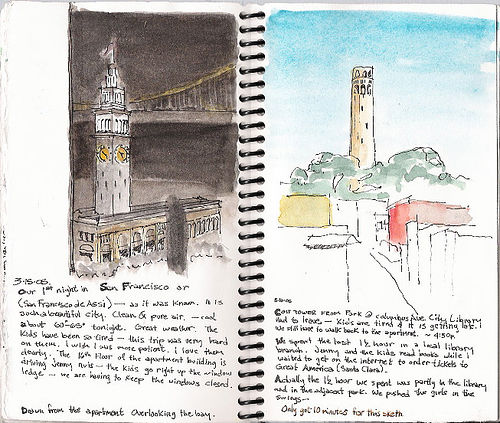 3-15-05.
Our 1st night in San Francisco or
(San Francisco de Assi) — as it was known. It is
such a beautiful city. Clean & pure air. — cool
about 60°-65° tonight. Great weather. The
kids have been so tired — this trip was very hard
on them. I wish I was more patient. I love them
dearly. The 16th Floor of the apartment building is
driving Jenny nuts — the kids go right up the window
ledge — we are having to keep the windows closed.
Down from the apartment overlooking the bay.
Coit tower from Park @ Columbus Ave. City Library
Had to leave — kids are tired & it is getting late.
We still have to walk back to the apartment. — 4:50pm
We spent the last 1½ hour in a local library
branch. Jenny and the kids read books while I
waited to get on the internet to order tickets to
Great America (Santa Clara).
Actually the 1½ hour we spent was partly in the library
and in the adjacent park. We pushed the girls in the
swings —
Only got 10 minutes for this sketch